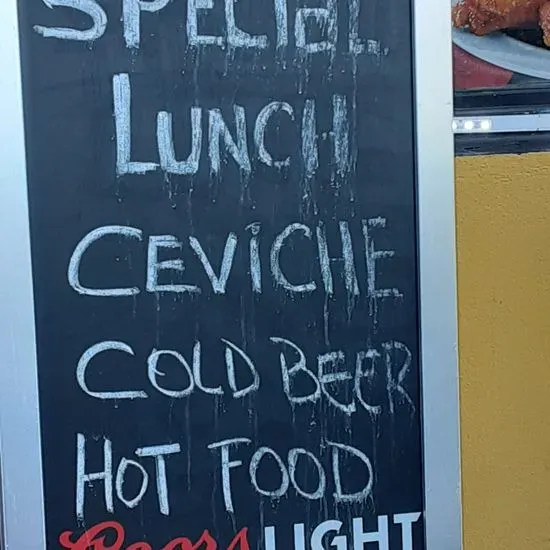 SPECIAL
LUNCH
CEVICHE
COLD BEER
HOT FOOD
Coors LIGHT